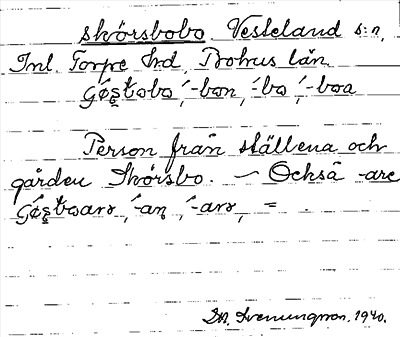 skörsbobo. Vesteland s:n,
Inl. Torpe hd, Bohus län.
-bon, -bo, -boa
Person från ställena och
gården Skörsbo. — Också -are
-an, -arr, =
Svenungsson. 1940.